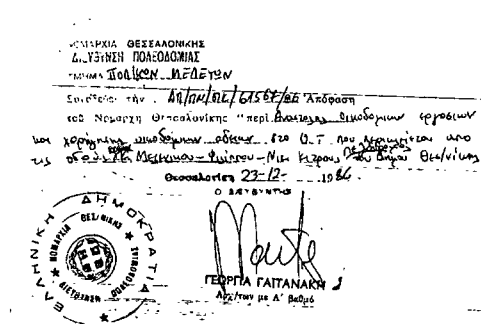 ΝΟΜΑΡΧΙΑ ΘΕΣΣΑΛΟΝΙΚΗΣ
ΔΙΕΥΘΥΝΣΗ ΠΟΛΕΟΔΟΜΙΑΣ
ΤΜΗΜΑ ΠΟΛ/ΚΩΝ ΜΕΛΕΤΩΝ
την ΔΠ/ΠΜ/ΠΕ/61567/86 Απόφαση
του Νομάρχη Θεσσαλονίκης "περί Αναστολής οικοδομικών εργασιών
και χορήγησης οικοδομικών αδειών στο Ο.Τ που περικλείεται από
τις οδούς Μελενίκου-Φιλίππου- του Δήμου Θεσ/νίκης
Θεσσαλονίκη 23-12- 1986
Ο ΔΙΕΥΘΥΝΤΗΣ
ΓΕΩΡΓΙΑ ΓΑΪΤΑΝΑΚΗ
Αρχ/των με Α' βαθμό
ΕΛΛΗΝΙΚΗ ΔΗΜΟΚΡΑΤΙΑ
ΝΟΜΑΡΧΙΑ ΘΕΣ/ΝΙΚΗΣ
ΔΙΕΥΘΥΝΣΗ ΠΟΛΕΟΔΟΜΙΑΣ